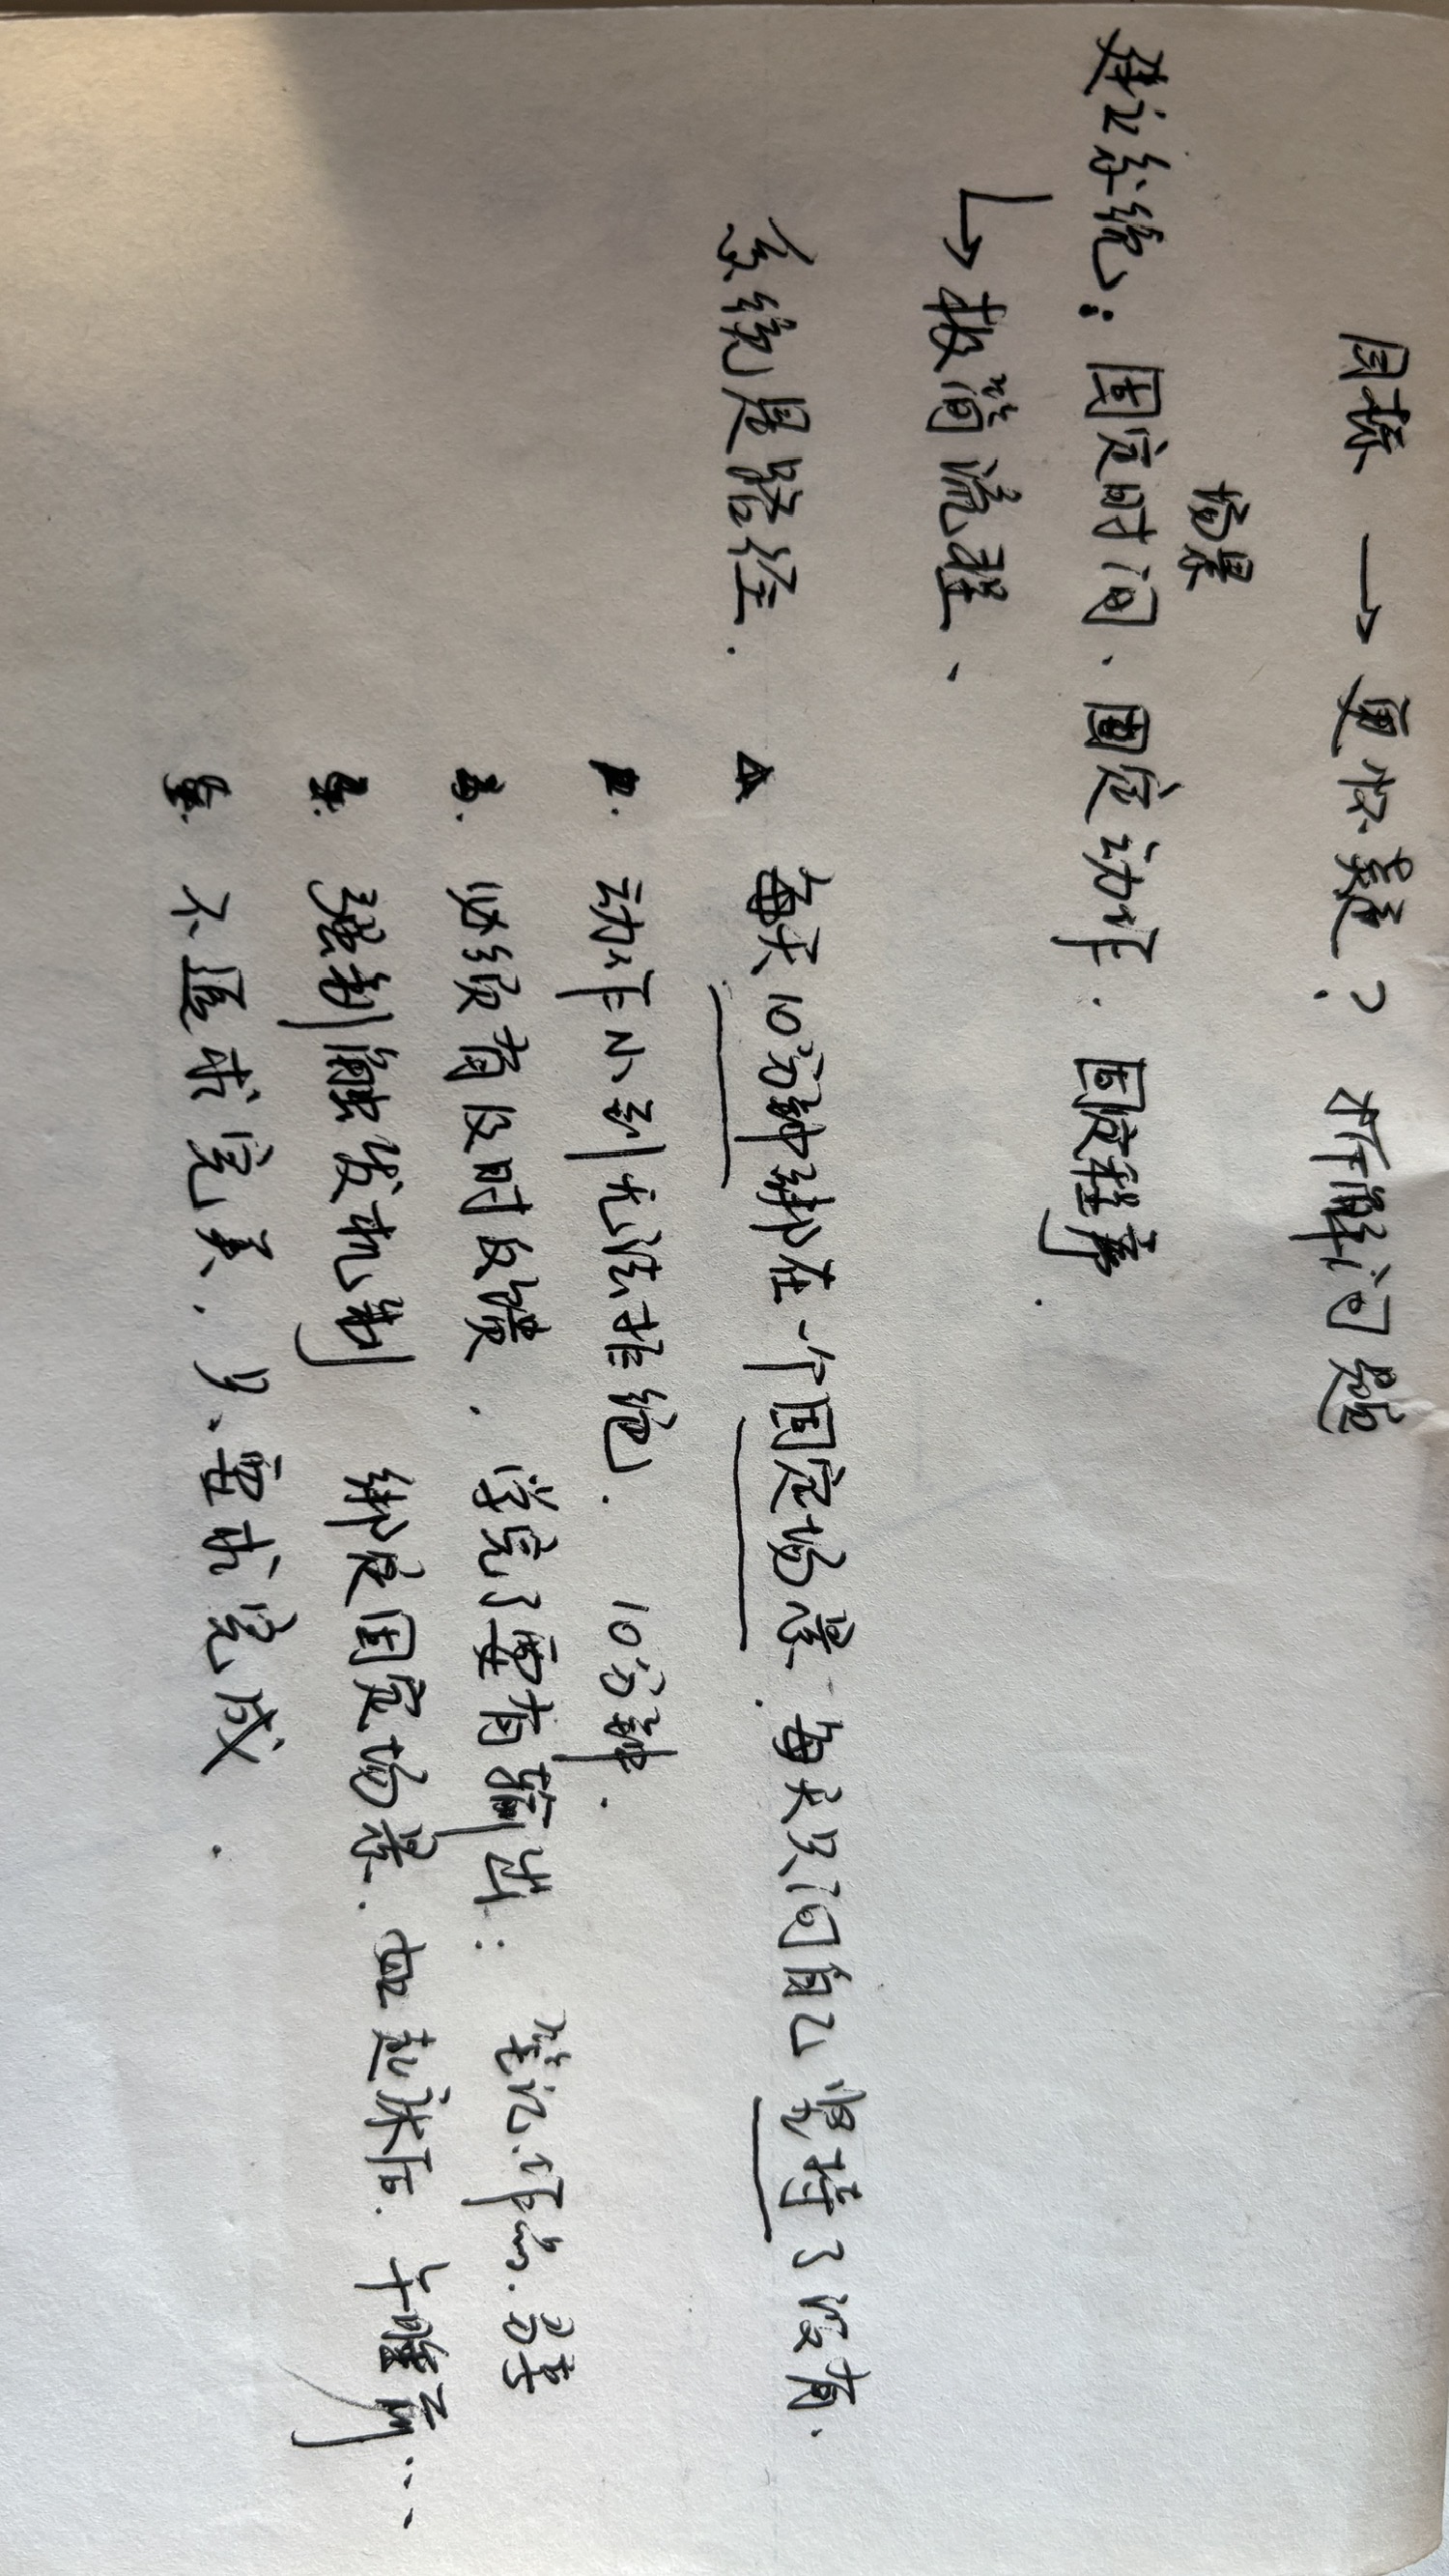 目标 → 更怀疑? 拆解问题
场景
建立系统: 固定时间、固定动作. 固定程序.
↳ 极简流程、
系统是路径.
每天10分钟绑在一个固定场景. 每天只问自己 坚持了没有.
动作小到无法拒绝. 10分钟.
必须有及时反馈. 学完了要有输出: 笔记.作品.分享
强制触发机制 绑定固定场景. 如起床后. 午睡前…
不追求完美. 只要求完成.